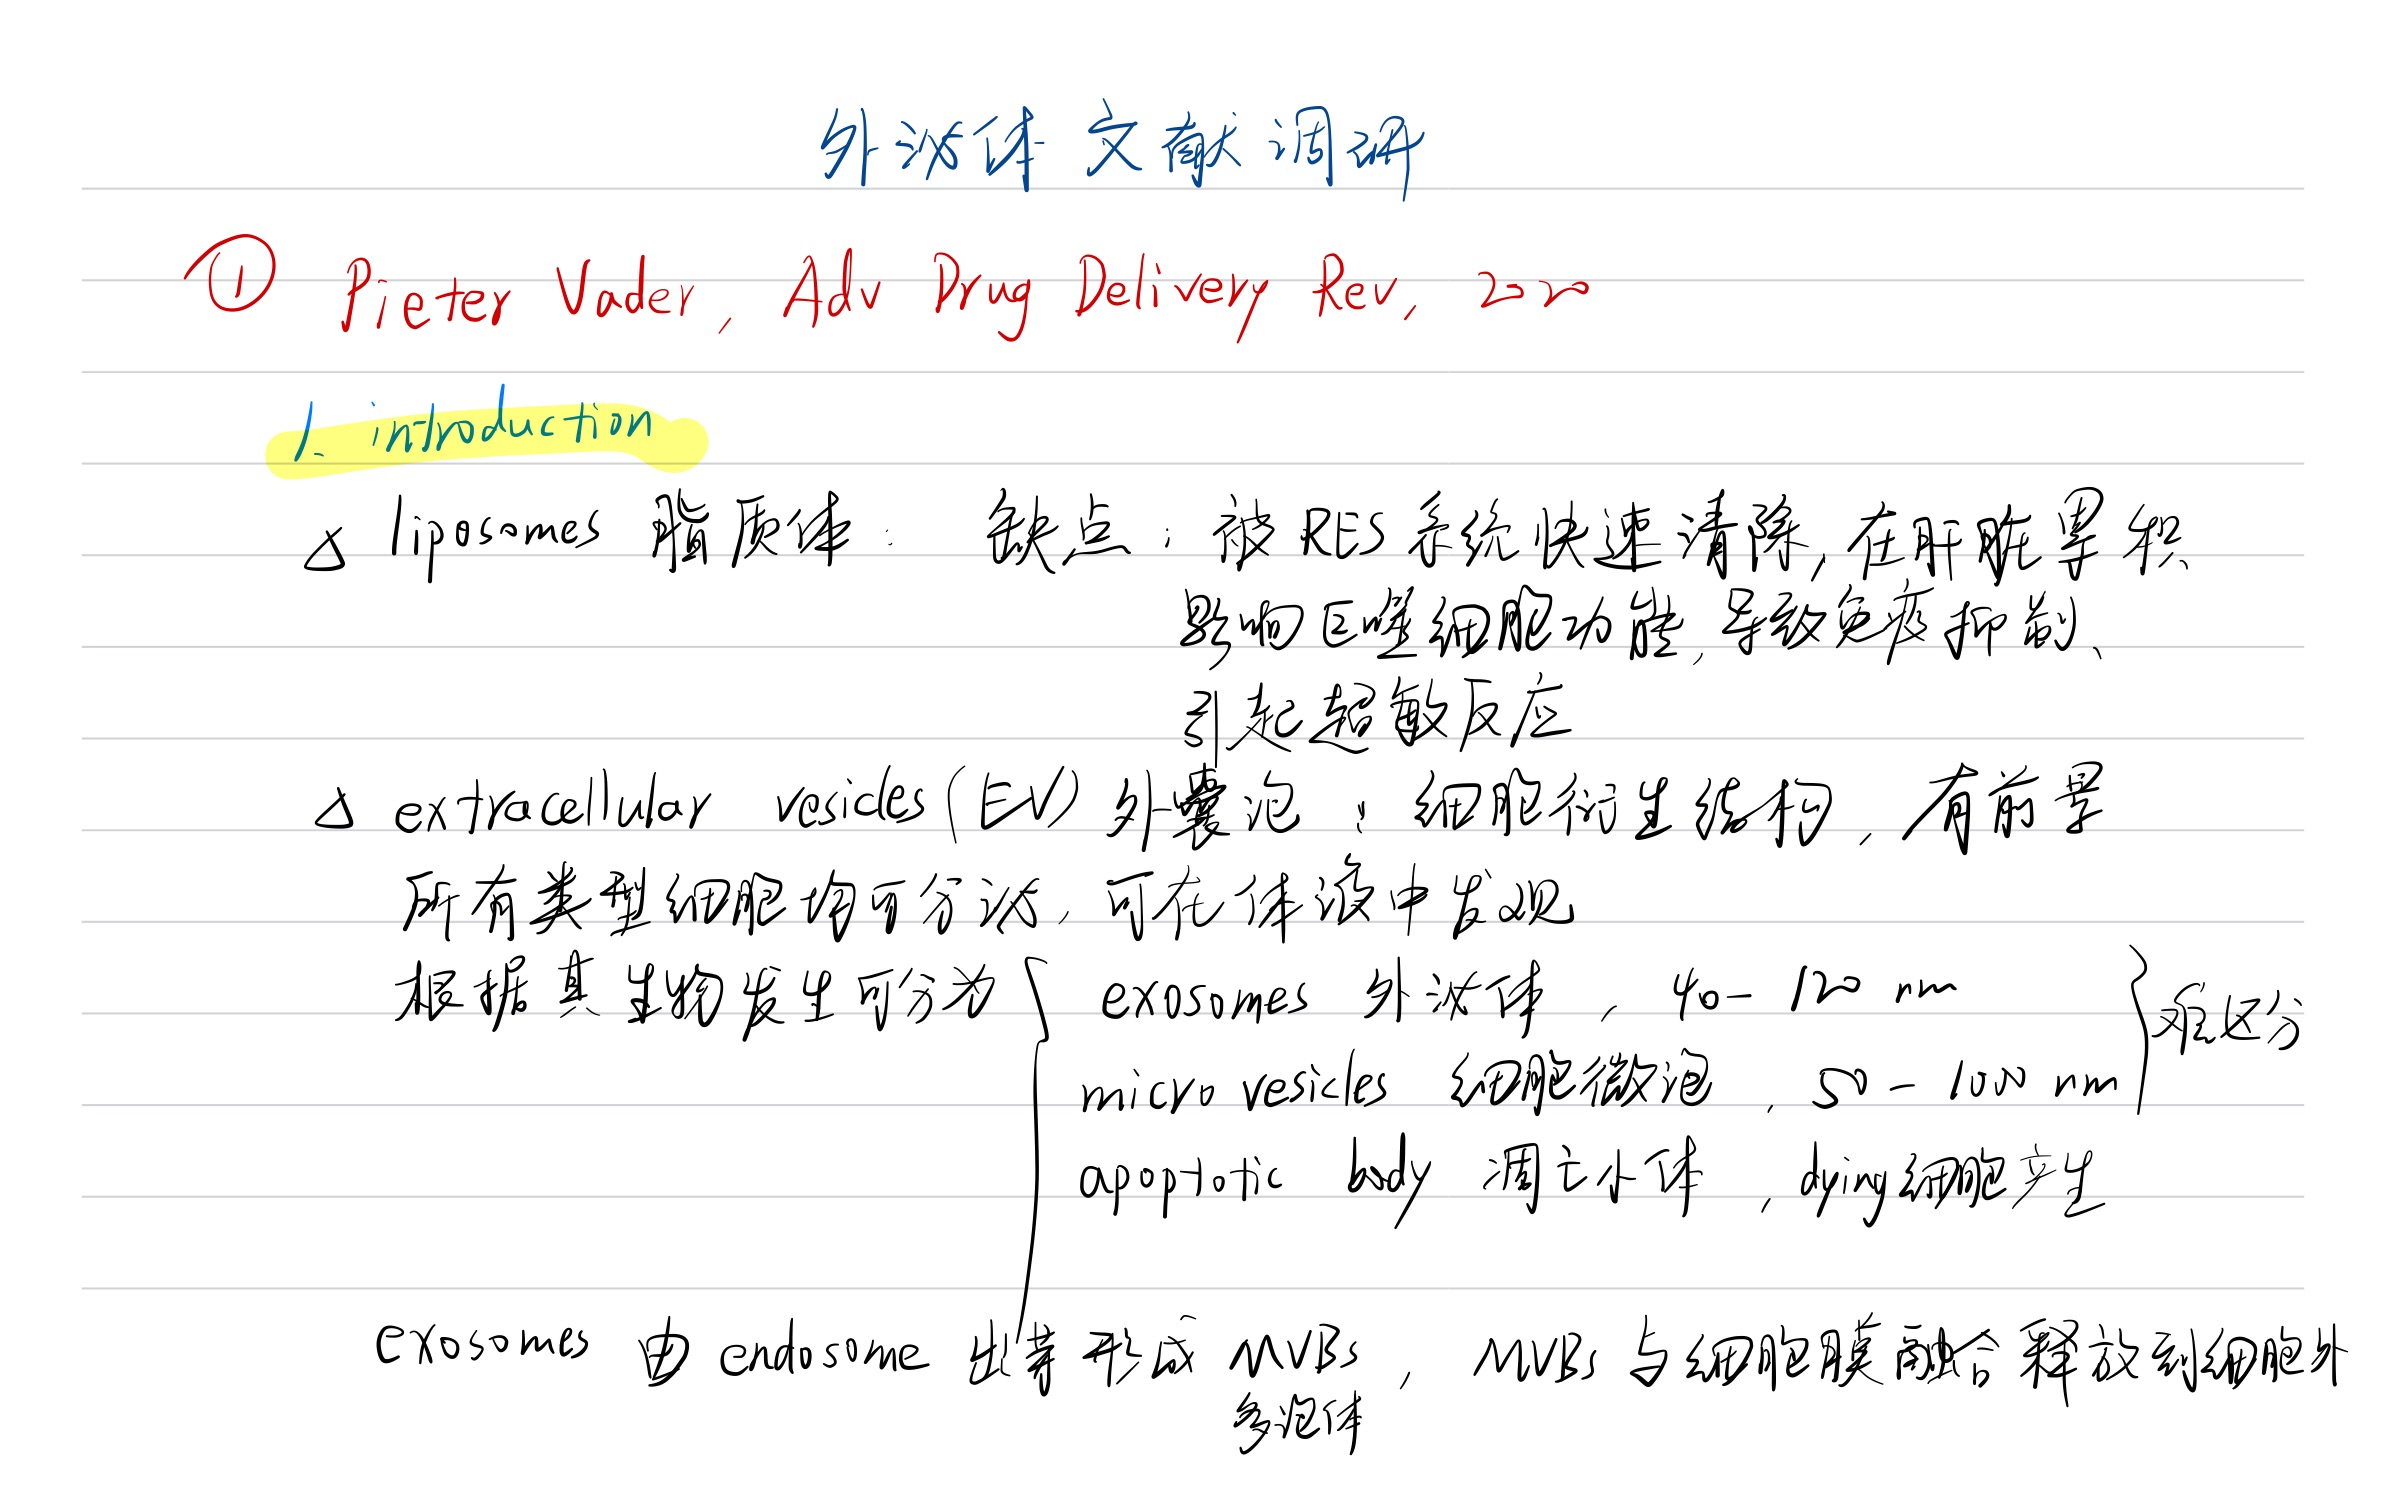 外泌体文献调研
① Pieter Vader, Adv Drug Delivery Rev, 2020
1. introduction
△ liposomes 脂质体: 缺点: 被RES系统快速清除, 在肝脏累积、
影响巨噬细胞功能, 导致免疫抑制、
引起超敏反应
△ extracellular vesicles (EV) 外囊泡: 细胞衍生结构, 有前景
所有类型细胞均可分泌, 可在体液中发现
根据其生物发生可分为
exosomes 外泌体, 40-120 nm
micro vesicles 细胞微泡, 50-1000 nm
难区分
apoptotic body 凋亡小体, dying细胞产生
exosomes 由 endosome 出芽形成 MVBs, MVBs 与细胞膜融合释放到细胞外
多泡体